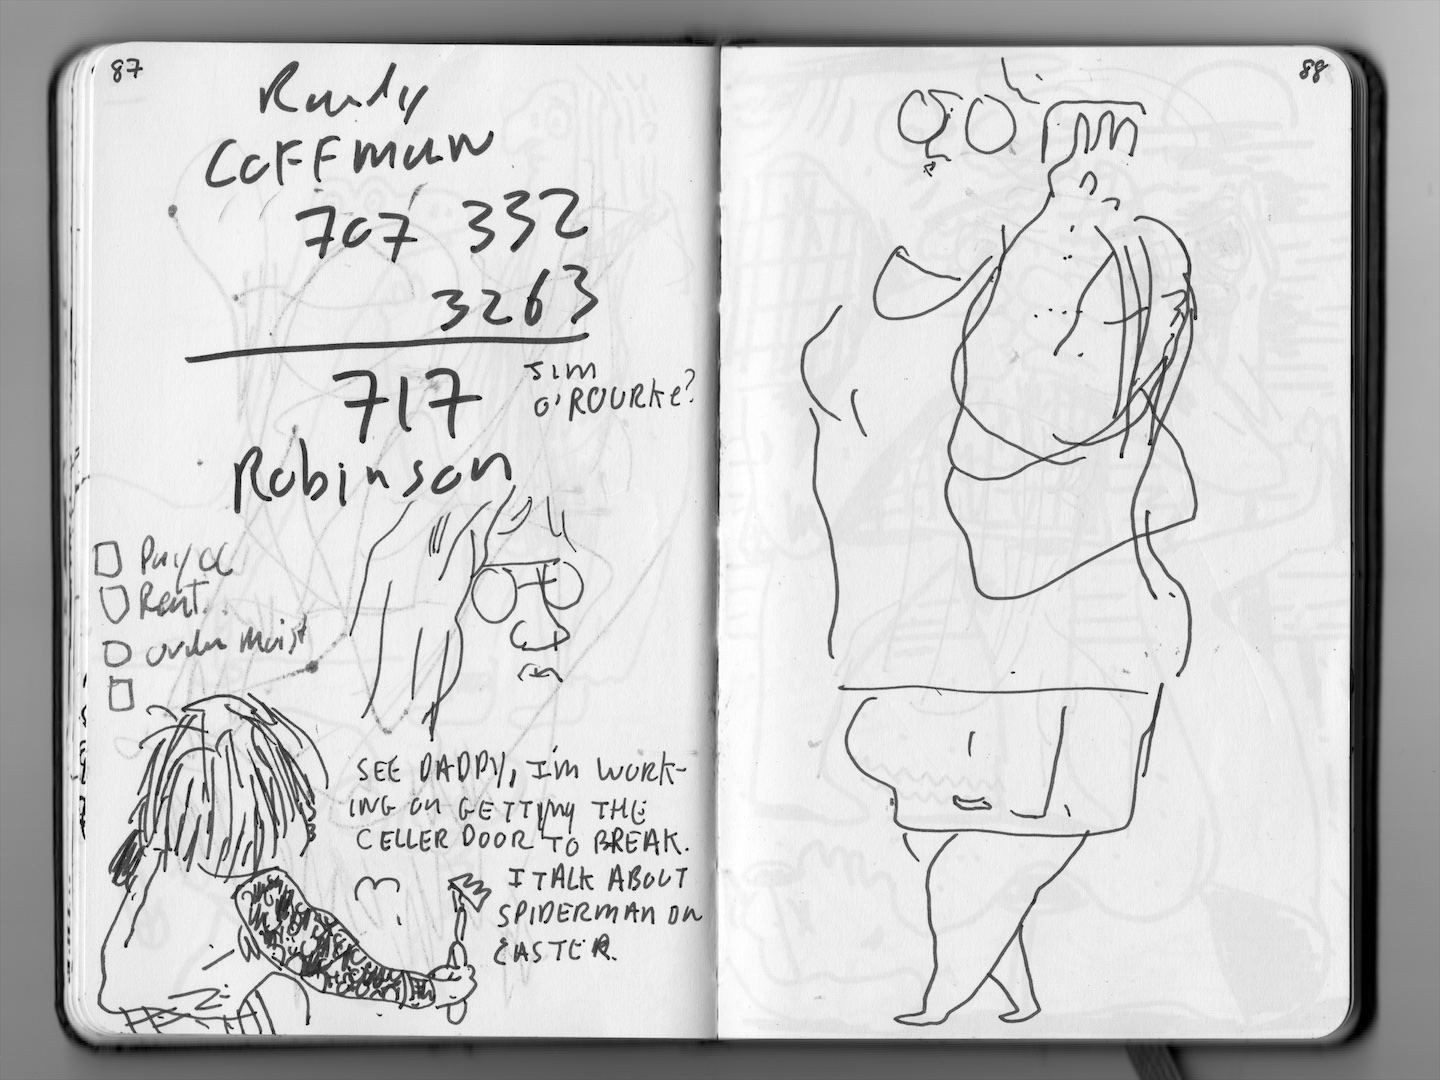 87
Randy
Coffman
707 332
3263
717
Jim
O'ROURKE?
Robinson
Pay
Rent
order Moist
SEE DADDY, I'm WORK-
ING ON GETTING THE
CELLER DOOR TO BREAK.
I TALK ABOUT
SPIDERMAN ON
EASTER.
88